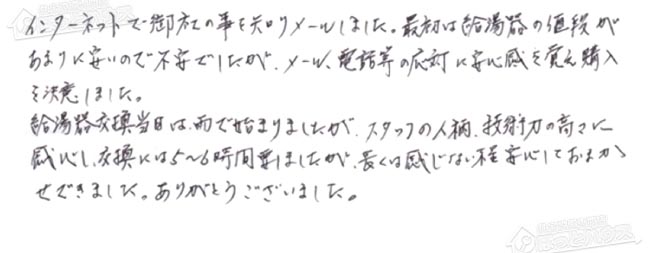 インターネットで御社の事を知りメールしました。最初は給湯器の値段が
あまりに安いので不安でしたが、メール、電話等の応対に安心感を覚え購入
を決意しました。
給湯器交換当日は、雨で始まりましたが、スタッフの人柄、技術力の高さに
感心し、交換には5～6時間要しましたが、長くは感じない程安心しておまか
せできました。ありがとうございました。